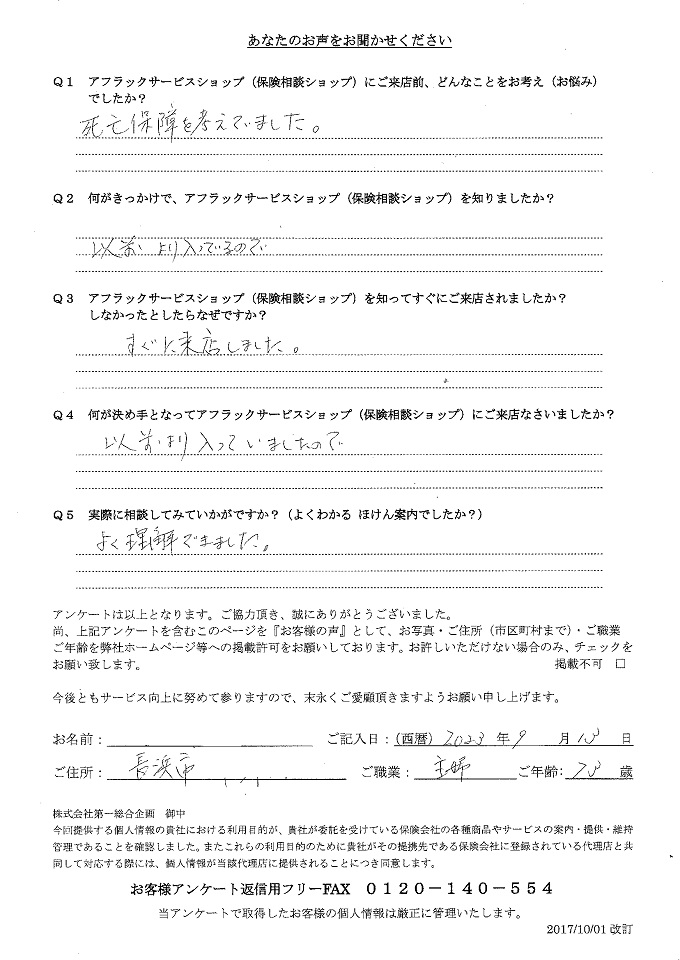 あなたのお声をお聞かせください
Q1 アフラックサービスショップ(保険相談ショップ)にご来店前、どんなことをお考え(お悩み)
でしたか?
死亡保障を考えていました。
Q2 何がきっかけで、アフラックサービスショップ(保険相談ショップ)を知りましたか?
以前より入っているので
Q3 アフラックサービスショップ(保険相談ショップ)を知ってすぐにご来店されましたか?
しなかったとしたらなぜですか?
すぐに来店しました。
Q4 何が決め手となってアフラックサービスショップ(保険相談ショップ)にご来店なさいましたか?
以前より入っていましたので
Q5 実際に相談してみていかがですか?(よくわかる ほけん案内でしたか?)
よく理解できました。
アンケートは以上となります。ご協力頂き、誠にありがとうございました。
尚、上記アンケートを含むこのページを『お客様の声』として、お写真・ご住所(市区町村まで)・ご職業
ご年齢を弊社ホームページ等への掲載許可をお願いしております。お許しいただけない場合のみ、チェックを
お願い致します。 掲載不可 □
今後ともサービス向上に努めて参りますので、末永くご愛顧頂きますようお願い申し上げます。
お名前: ご記入日:(西暦) 2023 年 9 月 13 日
ご住所: 長浜市 ご職業: 主婦 ご年齢: 73 歳
株式会社第一総合企画 御中
今回提供する個人情報の貴社における利用目的が、貴社が委託を受けている保険会社の各種商品やサービスの案内・提供・維持
管理であることを確認しました。またこれらの利用目的のために貴社がその提携先である保険会社に登録されている代理店と共
同して対応する際には、個人情報が当該代理店に提供されることにつき同意します。
お客様アンケート返信用フリーFAX 0120-140-554
当アンケートで取得したお客様の個人情報は厳正に管理いたします。
2017/10/01 改訂